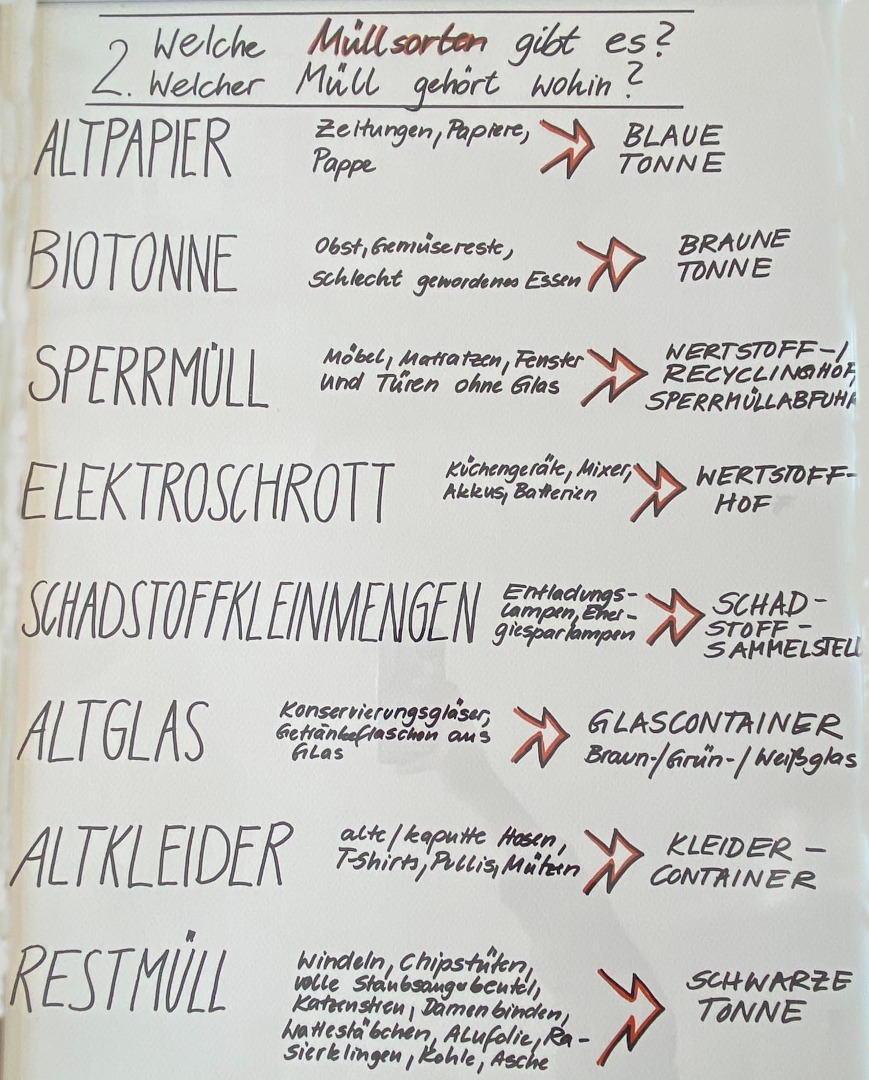 2. Welche Müllsorten gibt es?
Welcher Müll gehört wohin?
ALTPAPIER
Zeitungen, Papiere,
Pappe
BLAUE
TONNE
BIOTONNE
Obst, Gemüsereste,
schlecht gewordenes Essen
BRAUNE
TONNE
SPERRMÜLL
Möbel, Matratzen, Fenster
und Türen ohne Glas
WERTSTOFF-/
RECYCLINGHOF,
SPERRMÜLLABFUHR
ELEKTROSCHROTT
Küchengeräte, Mixer,
Akkus, Batterien
WERTSTOFF-
HOF
SCHADSTOFFKLEINMENGEN
Entladungs-
lampen, Ener-
giesparlampen
SCHAD-
STOFF-
SAMMELSTELL
ALTGLAS
Konservierungsgläser,
Getränkeflaschen aus
Glas
GLASCONTAINER
Braun-/Grün-/Weißglas
ALTKLEIDER
alte/kaputte Hosen,
T-Shirts, Pullis, Mützen
KLEIDER-
CONTAINER
RESTMÜLL
Windeln, Chipstüten,
volle Staubsaugerbeutel,
Katzenstreu, Damenbinden,
Wattestäbchen, Alufolie, Ra-
sierklingen, Kohle, Asche
SCHWARZE
TONNE